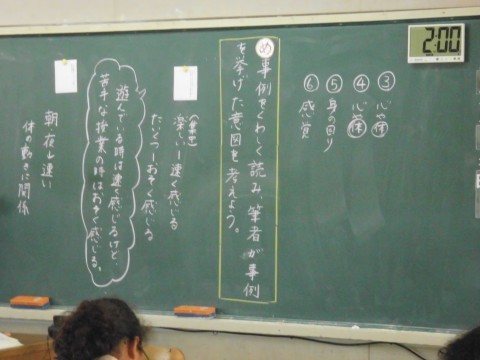 2:00
③心や体
④心や体
⑤身の回り
⑥感覚
め事例をくわしく読み、筆者が事例
を挙げた意図を考えよう。
楽しい→速く感じる
たいくつ→おそく感じる
遊んでいる時は速く感じるけど、
苦手な授業の時はおそく感じる。
朝・夜の違い
体の動きに関係